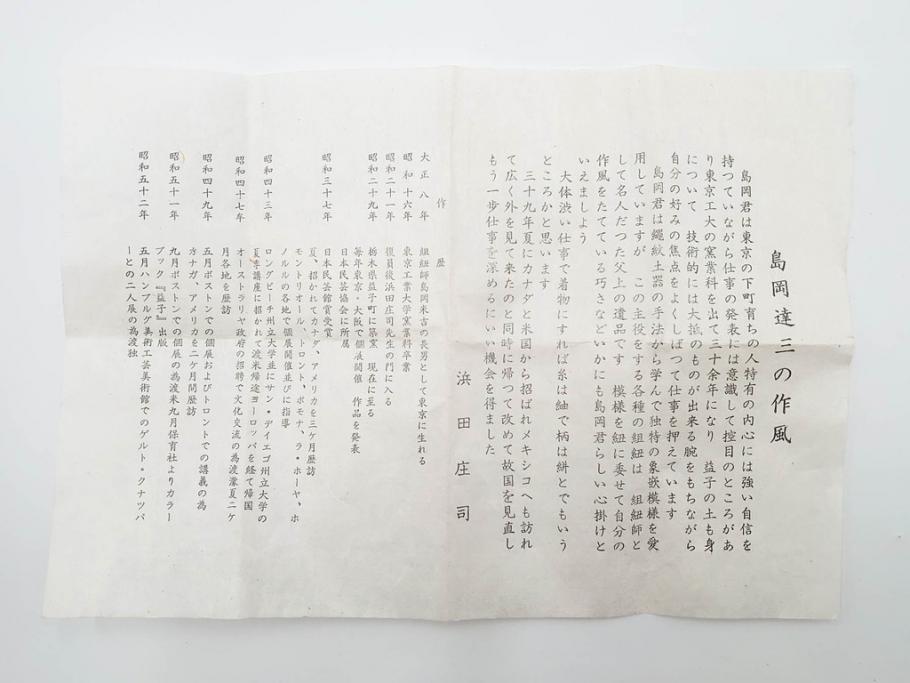 島岡達三の作風
島岡君は東京の下町育ちの人特有の内心には強い自信を
持つていながら仕事の発表には意識して控目のところがあ
り東京工大の窯業科を出て三十余年になり　益子の土も身
について　技術的には大抵のものが出来る腕をもちながら
自分の好みの焦点をよくしぼつて仕事を押えています
島岡君は縄紋土器の手法から学んで独特の象嵌模様を愛
用していますが　この主役をする各種の組紐は　組紐師と
して名人だつた父上の遺品です　模様を紐に委せて自分の
作風をたてている巧さなどいかにも島岡君らしい心掛けと
いえましよう
大体渋い仕事で着物にすれば糸は紬で柄は絣とでもいう
ところかと思います
三十九年夏にカナダと米国から招ばれメキシコへも訪れ
て広く外を見て来たのと同時に帰つて改めて故国を見直し
もう一歩仕事を深めるにいい機会を得ました
浜田庄司
作歴
大正八年　組紐師島岡米吉の長男として東京に生れる
昭和十六年　東京工業大学窯業科卒業
昭和二十一年　復員後浜田庄司先生の門に入る
昭和二十九年　栃木県益子町に築窯　現在に至る
毎年東京・大阪で個展開催　作品を発表
日本民芸協会に所属
昭和三十七年　日本民芸館賞受賞
夏、招かれてカナダ、アメリカを三ケ月歴訪
モントリオール、トロント、ポモナ、ラ・ホーヤ、ホ
ノルルの各地で個展開催並びに指導
昭和四十三年　ロングビーチ州立大学並にサン・デイエゴ州立大学の
夏季講座に招かれて渡米帰途ヨーロッパを経て帰国
昭和四十七年　オーストラリヤ政府の招聘で文化交流の為渡濠夏二ケ
月各地を歴訪
昭和四十九年　五月ボストンでの個展およびトロントでの講義の為
カナダ、アメリカを二ケ月間歴訪
昭和五十一年　九月ボストンでの個展の為渡米九月保育社よりカラー
ブック『益子』出版
昭和五十二年　五月ハンブルグ美術工芸美術館でのゲルト・クナツパ
ーとの二人展の為渡独